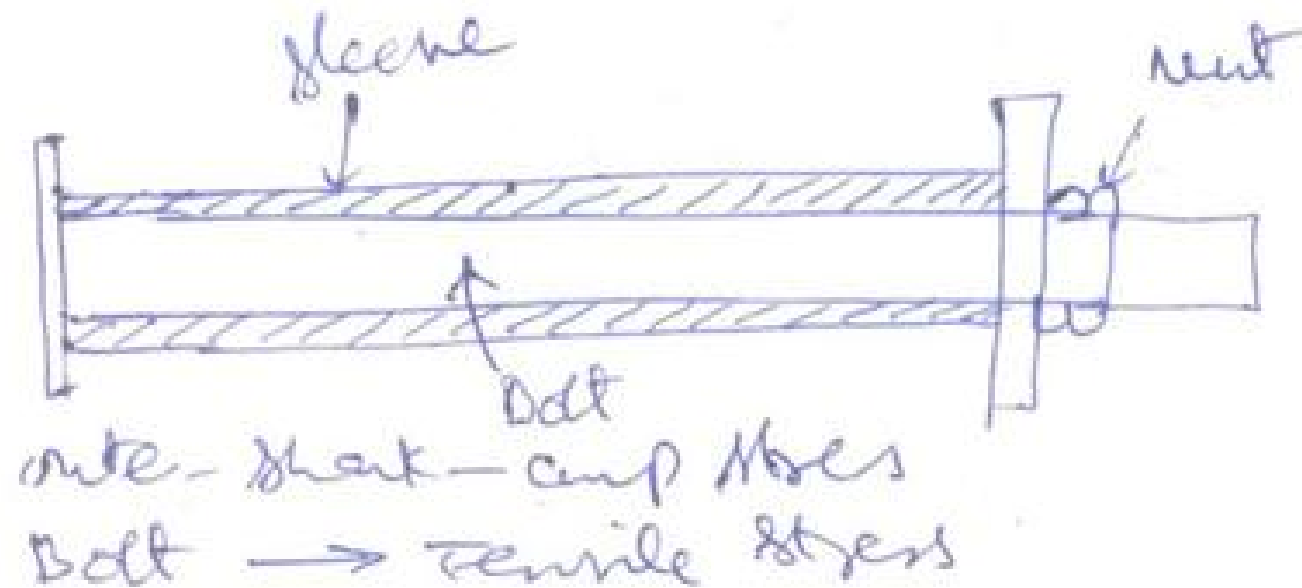 sleeve
nut
Bolt
comp stress
Bolt → Tensile stress